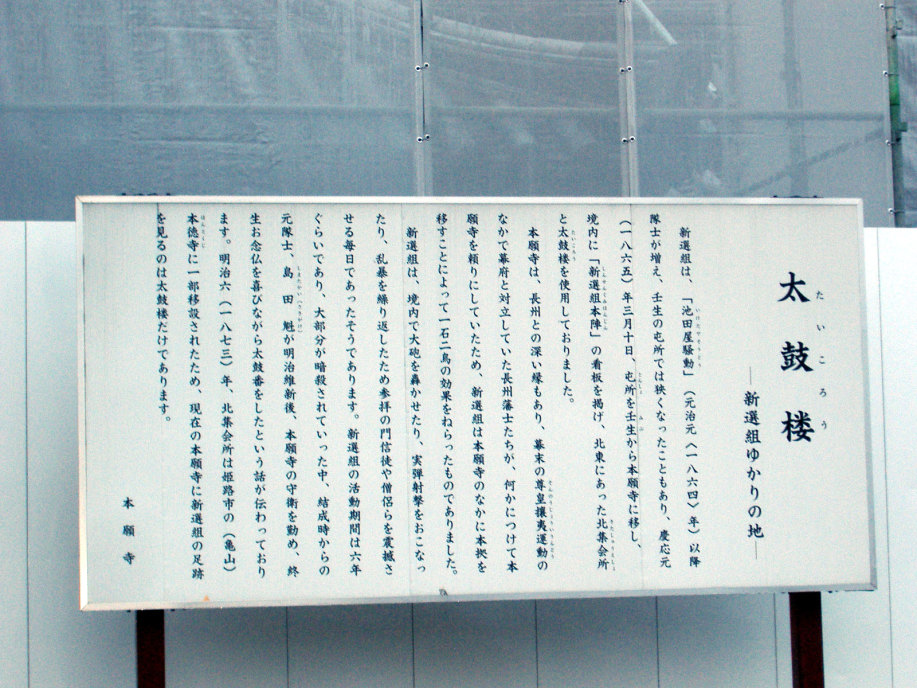 太鼓楼
たいころう
―新選組ゆかりの地―
新選組は、「池田屋騒動」（元治元（一八六四）年）以降
隊士が増え、壬生の屯所では狭くなったこともあり、慶応元
（一八六五）年三月十日、屯所を壬生から本願寺に移し、
境内に「新選組本陣」の看板を掲げ、北東にあった北集会所
と太鼓楼を使用しておりました。
本願寺は、長州との深い縁もあり、幕末の尊皇攘夷運動の
なかで幕府と対立していた長州藩士たちが、何かにつけて本
願寺を頼りにしていたため、新選組は本願寺のなかに本拠を
移すことによって一石二鳥の効果をねらったものでありました。
新選組は、境内で大砲を轟かせたり、実弾射撃をおこなっ
たり、乱暴を繰り返したため参拝の門信徒や僧侶らを震撼さ
せる毎日であったそうであります。新選組の活動期間は六年
ぐらいであり、大部分が暗殺されていった中、結成時からの
元隊士、島田 魁が明治維新後、本願寺の守衛を勤め、終
生お念仏を喜びながら太鼓番をしたという話が伝わっており
ます。明治六（一八七三）年、北集会所は姫路市の（亀山）
本徳寺に一部移設されたため、現在の本願寺に新選組の足跡
を見るのは太鼓楼だけであります。
本願寺